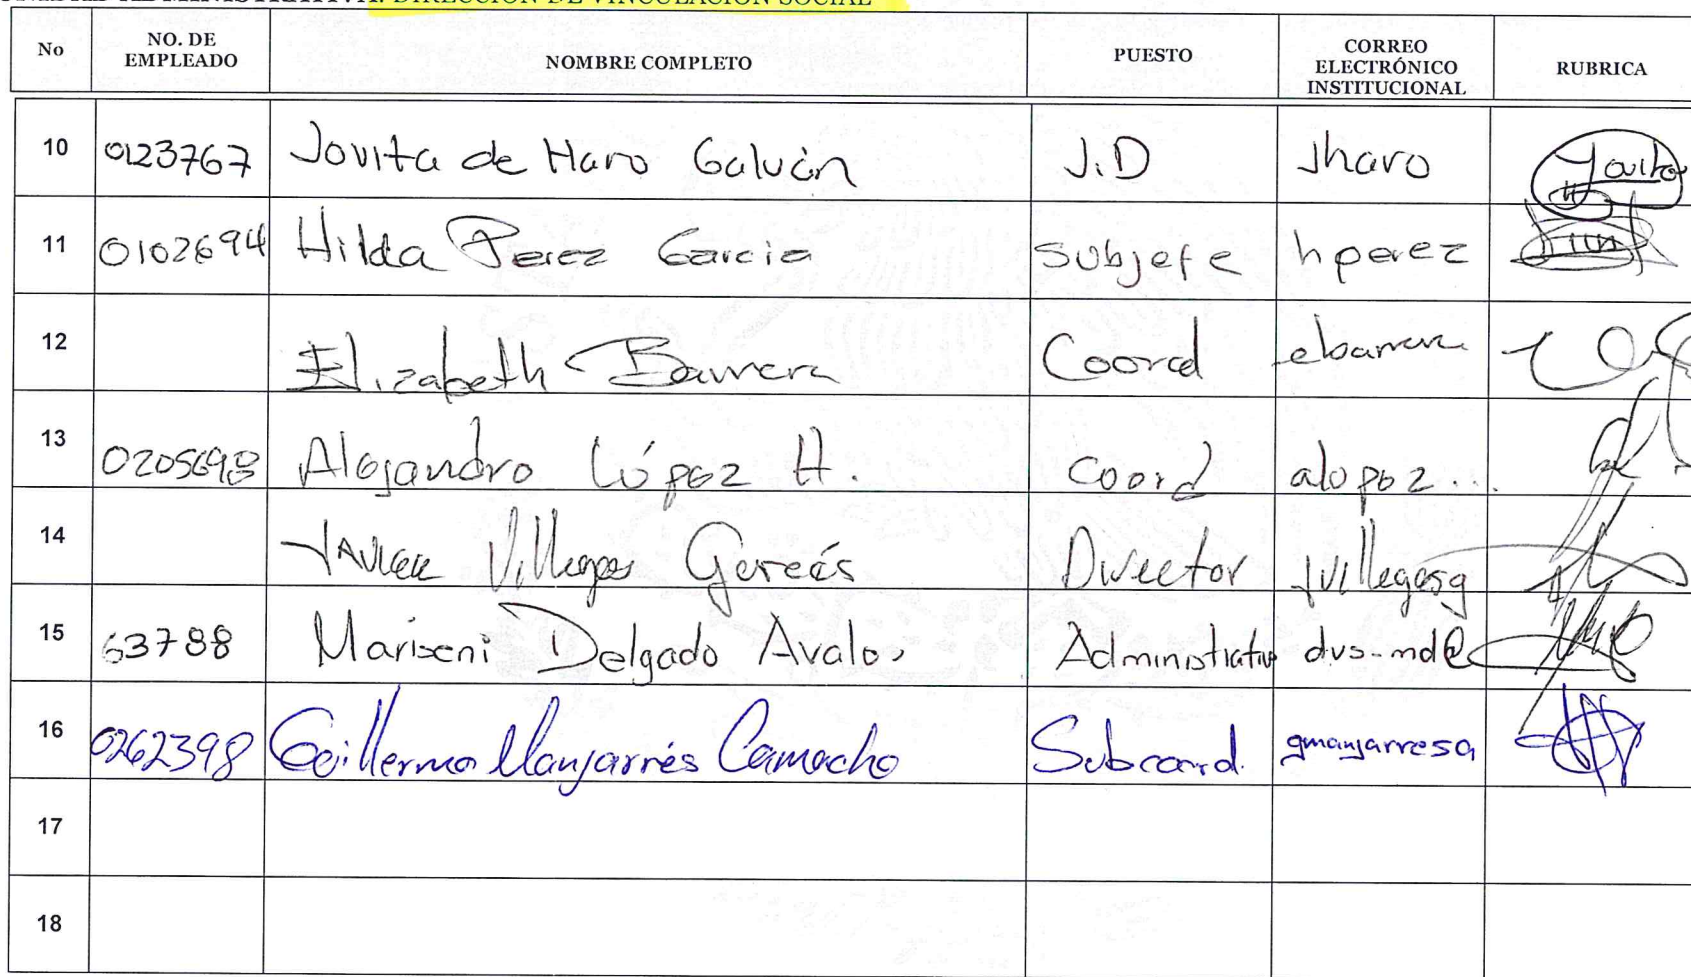 UNIDAD ADMINISTRATIVA: DIRECCIÓN DE VINCULACIÓN SOCIAL
No NO. DE EMPLEADO NOMBRE COMPLETO PUESTO CORREO ELECTRÓNICO INSTITUCIONAL RUBRICA
10 0123767 Jovita de Haro Galván J.D Jharo Jovita
11 0102694 Hilda Perez Garcia Subjefe hperez
12 Elizabeth Barrera Coord ebarrera
13 0205698 Alejandro López H. Coord alopez...
14 Javier Villegas Garcés Director jvillegasg
15 63788 Mariseni Delgado Avalos Administrativo dvs-md@
16 0262398 Guillermo Manjarrés Camacho Subcoord. gmanjarresa
17
18